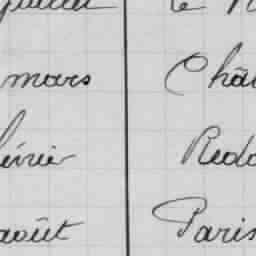 juillet le
mars Châ
février Redo
août Paris